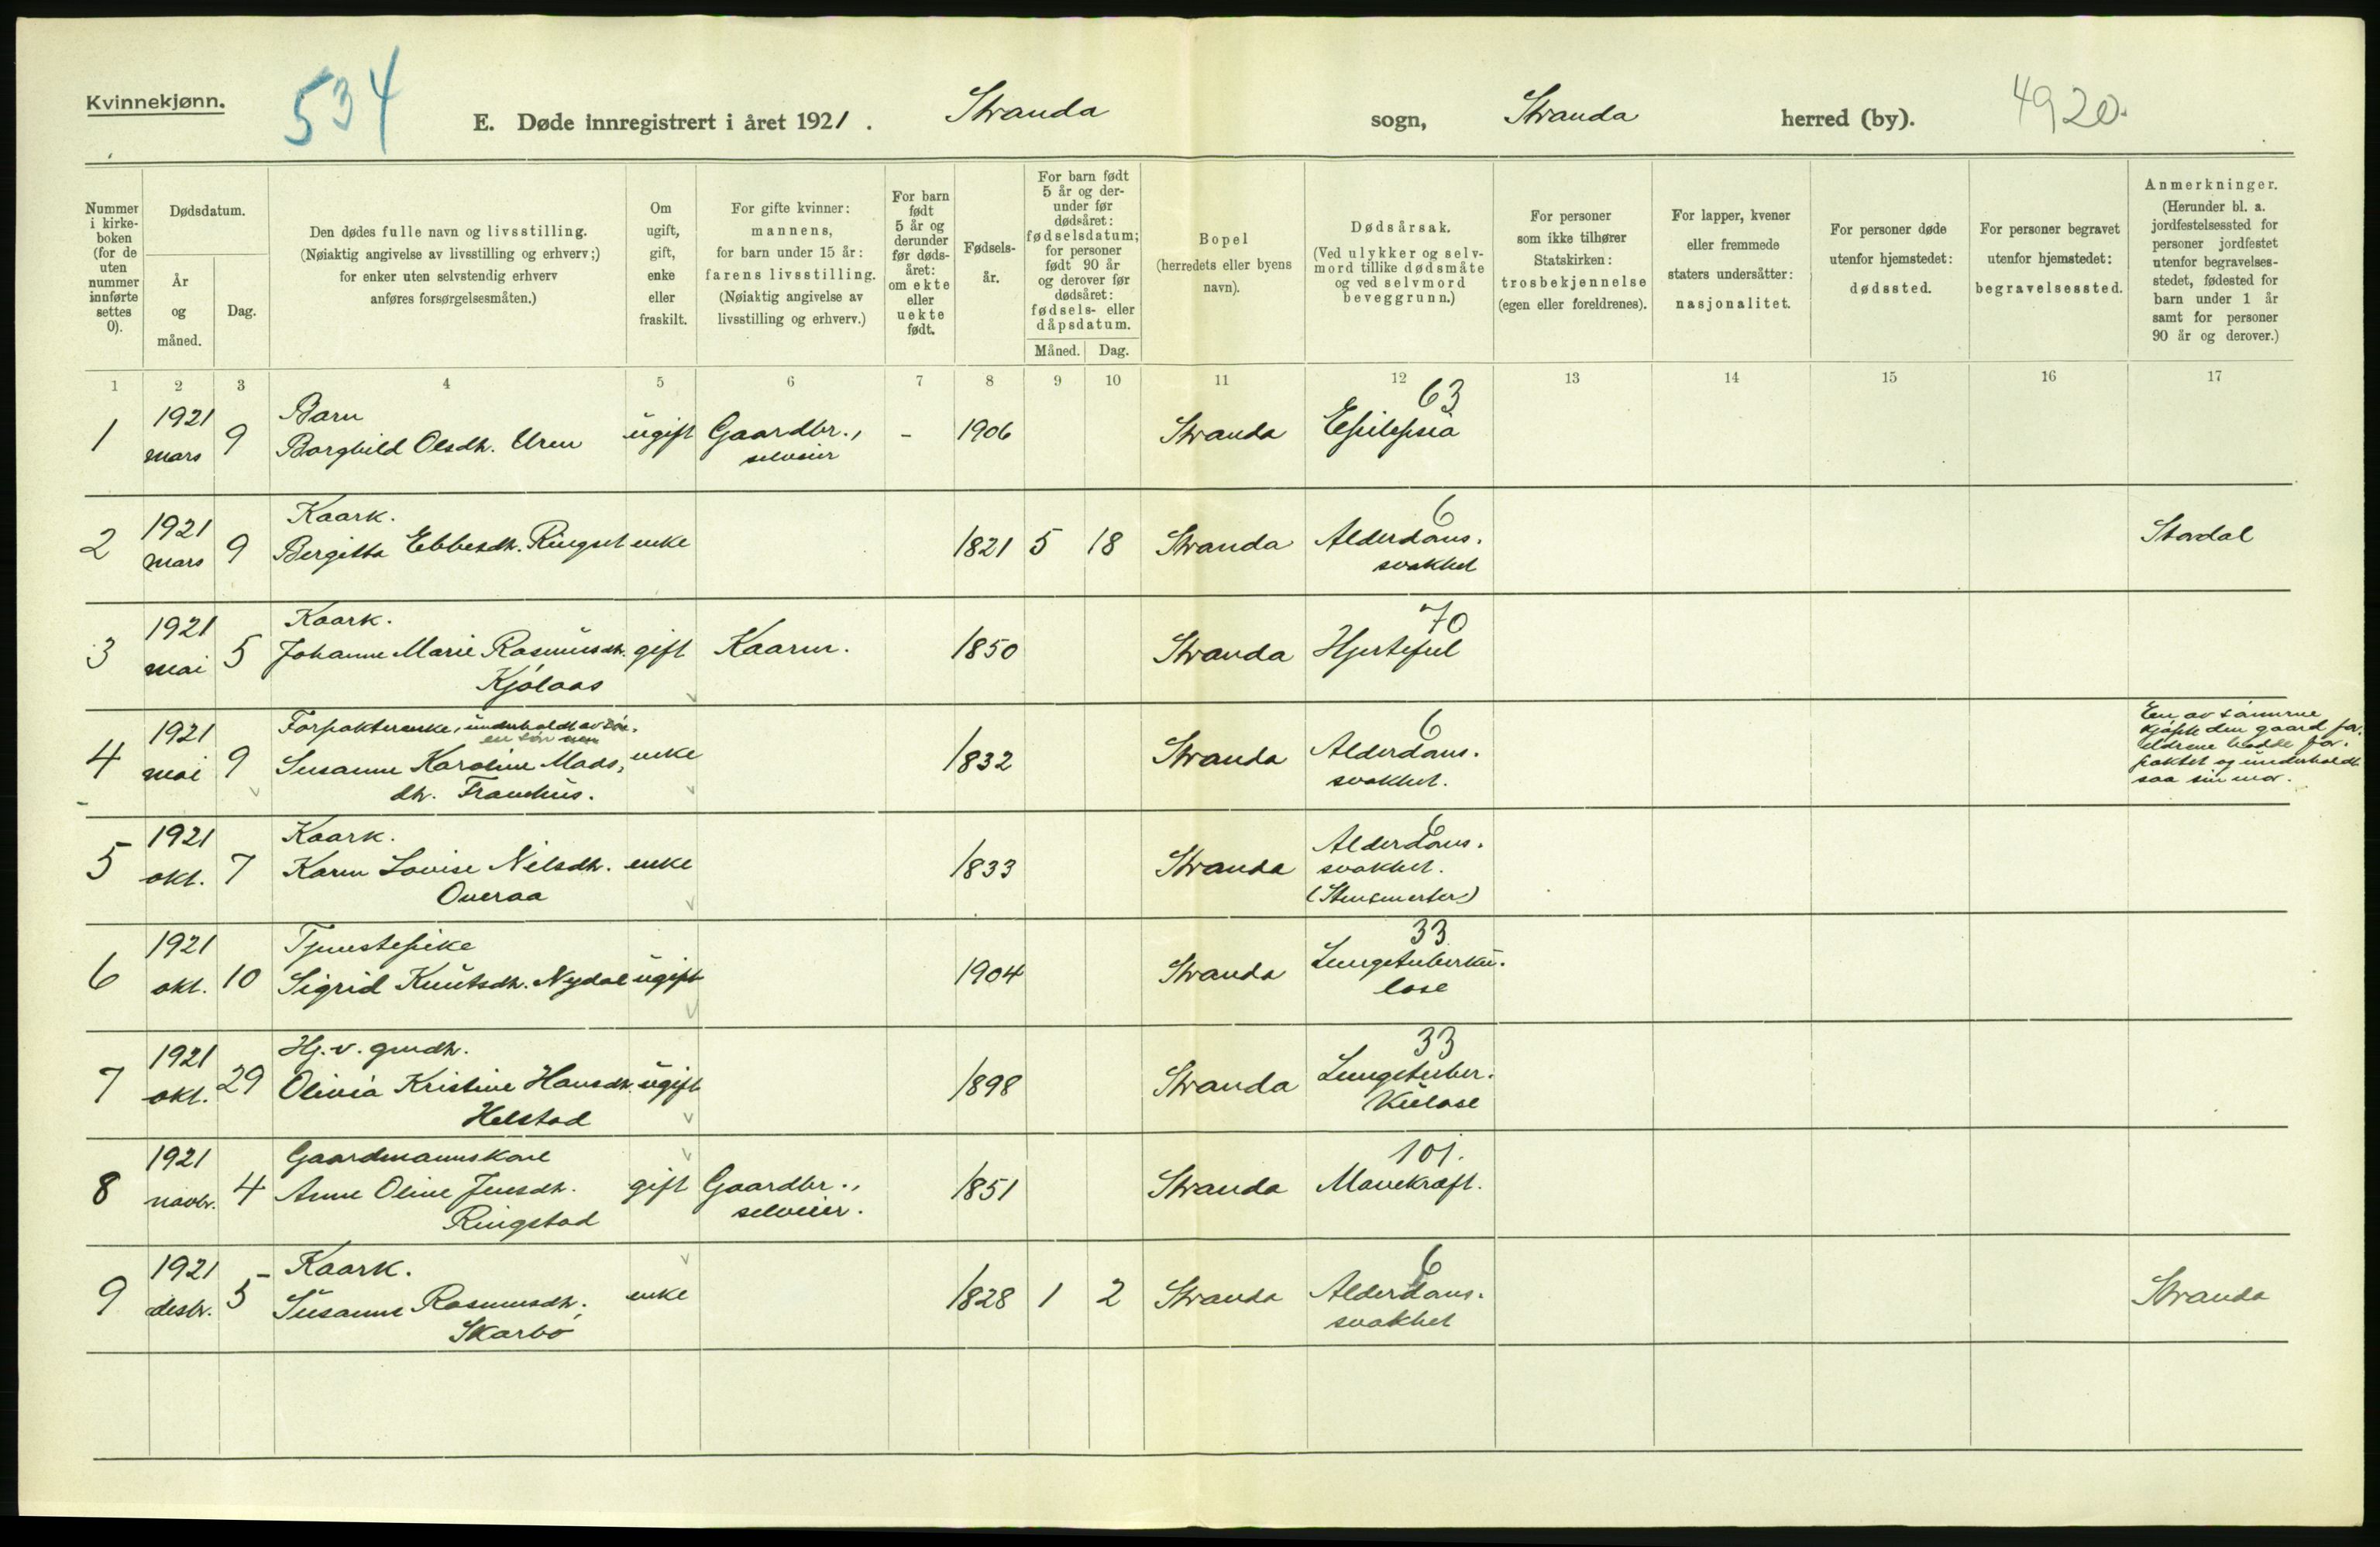 Kvinnekjønn.
534
E. Døde innregistrert i året 1921. Stranda sogn, Stranda herred (by). 4920.
Nummer i kirke-boken (for de uten nummer innførte settes 0).
Dødsdatum.
År og måned.
Dag.
Den dødes fulle navn og livsstilling.
(Nøiaktig angivelse av livsstilling og erhverv;)
for enker uten selvstendig erhverv
anføres forsørgelsesmåten.)
Om ugift, gift, enke eller fraskilt.
For gifte kvinner:
mannens,
for barn under 15 år:
farens livsstilling.
(Nøiaktig angivelse av
livsstilling og erhverv.)
For barn født 5 år og derunder før døds-året: om ekte eller uekte født.
Fødsels-
år.
For barn født 5 år og der-under før dødsåret: fødselsdatum; for personer født 90 år og derover før dødsåret: fødsels- eller dåpsdatum.
Måned. Dag.
Bopel
(herredets eller byens
navn).
Dødsårsak.
(Ved ulykker og selv-
mord tillike dødsmåte
og ved selvmord
beveggrunn.)
For personer
som ikke tilhører
Statskirken:
trosbekjennelse
(egen eller foreldrenes).
For lapper, kvener
eller fremmede
staters undersåtter:
nasjonalitet.
For personer døde
utenfor hjemstedet:
dødssted.
For personer begravet
utenfor hjemstedet:
begravelsessted.
Anmerkninger.
(Herunder bl. a.
jordfestelsessted for
personer jordfestet
utenfor begravelses-
stedet, fødested for
barn under 1 år
samt for personer
90 år og derover.)
1 2 3 4 5 6 7 8 9 10 11 12 13 14 15 16 17
1921 Barn 63
1 mars 9 Borghild Olsdh. Uren ugift Gaardbr., - 1906 Stranda Epilepsia
selveier
1921 Kaark. 6
2 mars 9 Bergitta Ebbesdh. Ringset enke 1821 5 18 Stranda Alderdoms. Stordal
svakhet
1921 Kaark. 70
3 mai 5 Johanne Marie Rasmusdh. gift Kaarm. 1850 Stranda Hjertefeil
Kjølaas
1921 Forpakterenke, underholdt av
en søn
4 mai 9 Susanne Karoline Mads, enke 1832 Stranda Alderdoms.
dh. Franchus. svakhet.
6
En av sønnerne
kjøpte den gaard for.
eldrene hadde for.
paktet og underholdt
saa sin mor.
1921 Kaark. 6
5 okt. 7 Karen Lovise Nilsdh. enke 1833 Stranda Alderdoms.
Overaa svakhet.
(Stensmerter)
1921 Tjenestepike 33
6 okt. 10 Sigrid Knutsdh. Nydal ugift 1904 Stranda Lungetuberku.
lose
1921 Hj. v. gmdh. 33
7 okt. 29 Olivia Kristine Hansdh. ugift 1898 Stranda Lungetuber.
Helstad kulose
1921 Gaardmannskone 101.
8 novbr. 4 Anne Oline Jensdh. gift Gaardbr., 1851 Stranda Mavekræft.
Ringstad selveier.
1921 Kaark. 6
9 desbr. 5 Susanne Rasmusdh. enke 1828 1 2 Stranda Alderdoms. Stranda
Skarbø svakhet